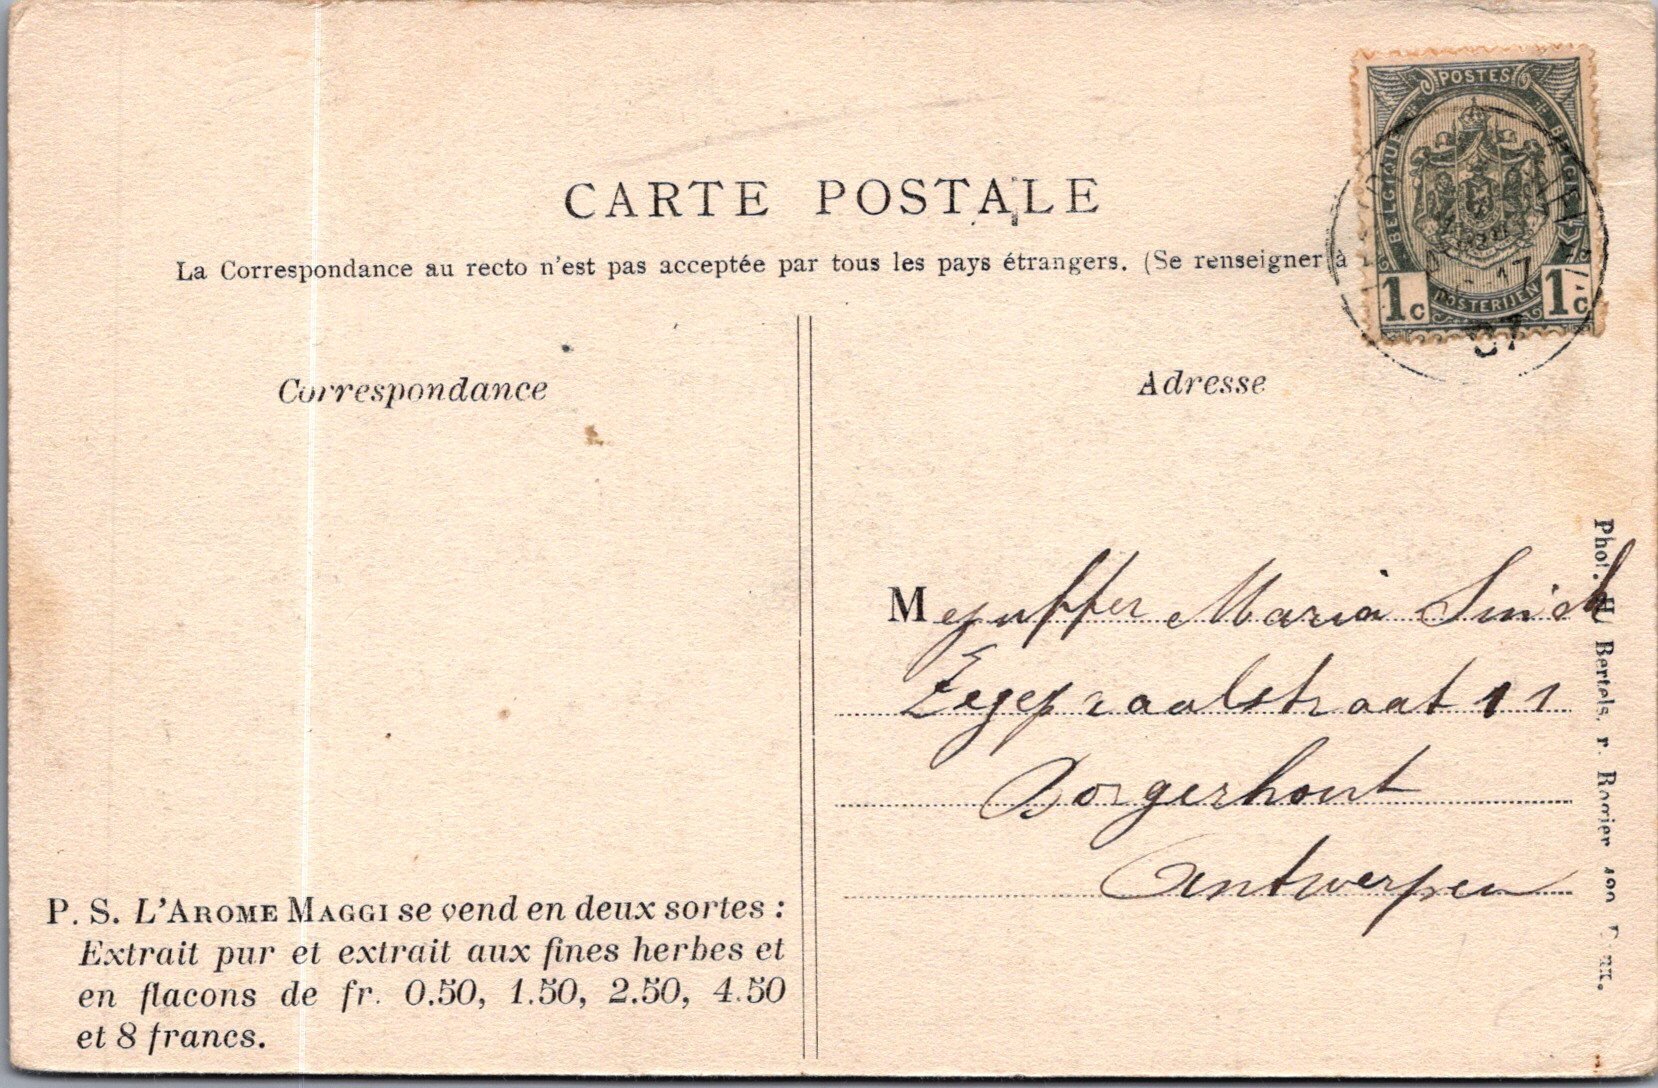 CARTE POSTALE
La Correspondance au recto n'est pas acceptée par tous les pays étrangers. (Se renseigner à
POSTES
BELGIQUE
BELGIE
POSTERIJEN
1c 1c
17
07
Correspondance
Adresse
Mejuffer Maria
Zegepraalstraat 11
Borgerhout
Antwerpen
P. S. L'AROME MAGGI se vend en deux sortes :
Extrait pur et extrait aux fines herbes et
en flacons de fr. 0.50, 1.50, 2.50, 4.50
et 8 francs.
Phot. H. Bertels, r. Rogier